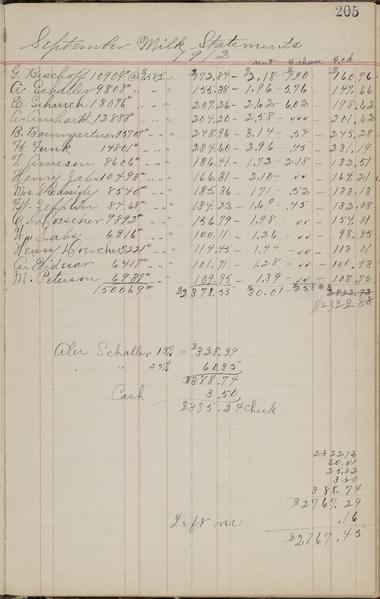 205
September Milk Statements
1912
G. Bischoff 10909# @ $1.585 = $172.84 - 2.18 - 9.90 $160.76
A. Schaller 9808# " " = 155.38 - 1.96 - 3.76 149.66
E. Schurch 13076# " " = 207.26 - 2.62 - 6.02 - 198.62
A. Amhartt 12888# " " - 204.20 - 2.58 - 201.62
B. Baumgartner 15708# " = 248.96 - 3.14 - .54 - 245.28
H. Funk 14801# " = 234.60 - 2.96 - .45 - 231.19
T. Arneson 8606# " = 136.41 - 1.72 - 2.18 - 132.51
Henry Jabs 10498# " - 166.31 - 2.10 - 164.21
Mrs Cassidy 8540# " - 135.36 - 1.71 - .52 - 133.13
H. Zepplin 8468# " = 134.22 - 1.69 - .45 - 132.08
C. Hoescher 9893# " = 156.79 - 1.98 - 154.81
Wm Labs 6316# " - 100.11 - 1.26 - 98.85
Henry Houche 7221# " = 114.45 - 1.44 - 113.01
A. Bidwar 6418# " 101.71 - 1.28 - 100.43
M. Peterson 6937# " - 109.95 - 1.39 - 108.72
150069# $2378.55 - 30.01
Aler Schaller 13% = $328.39
" " 25% 60.35
$388.74
Cash 3.50
$385.24 Check
2322.73
30.01
3.50
388.74
$2767.29
Left over .16
$2767.45